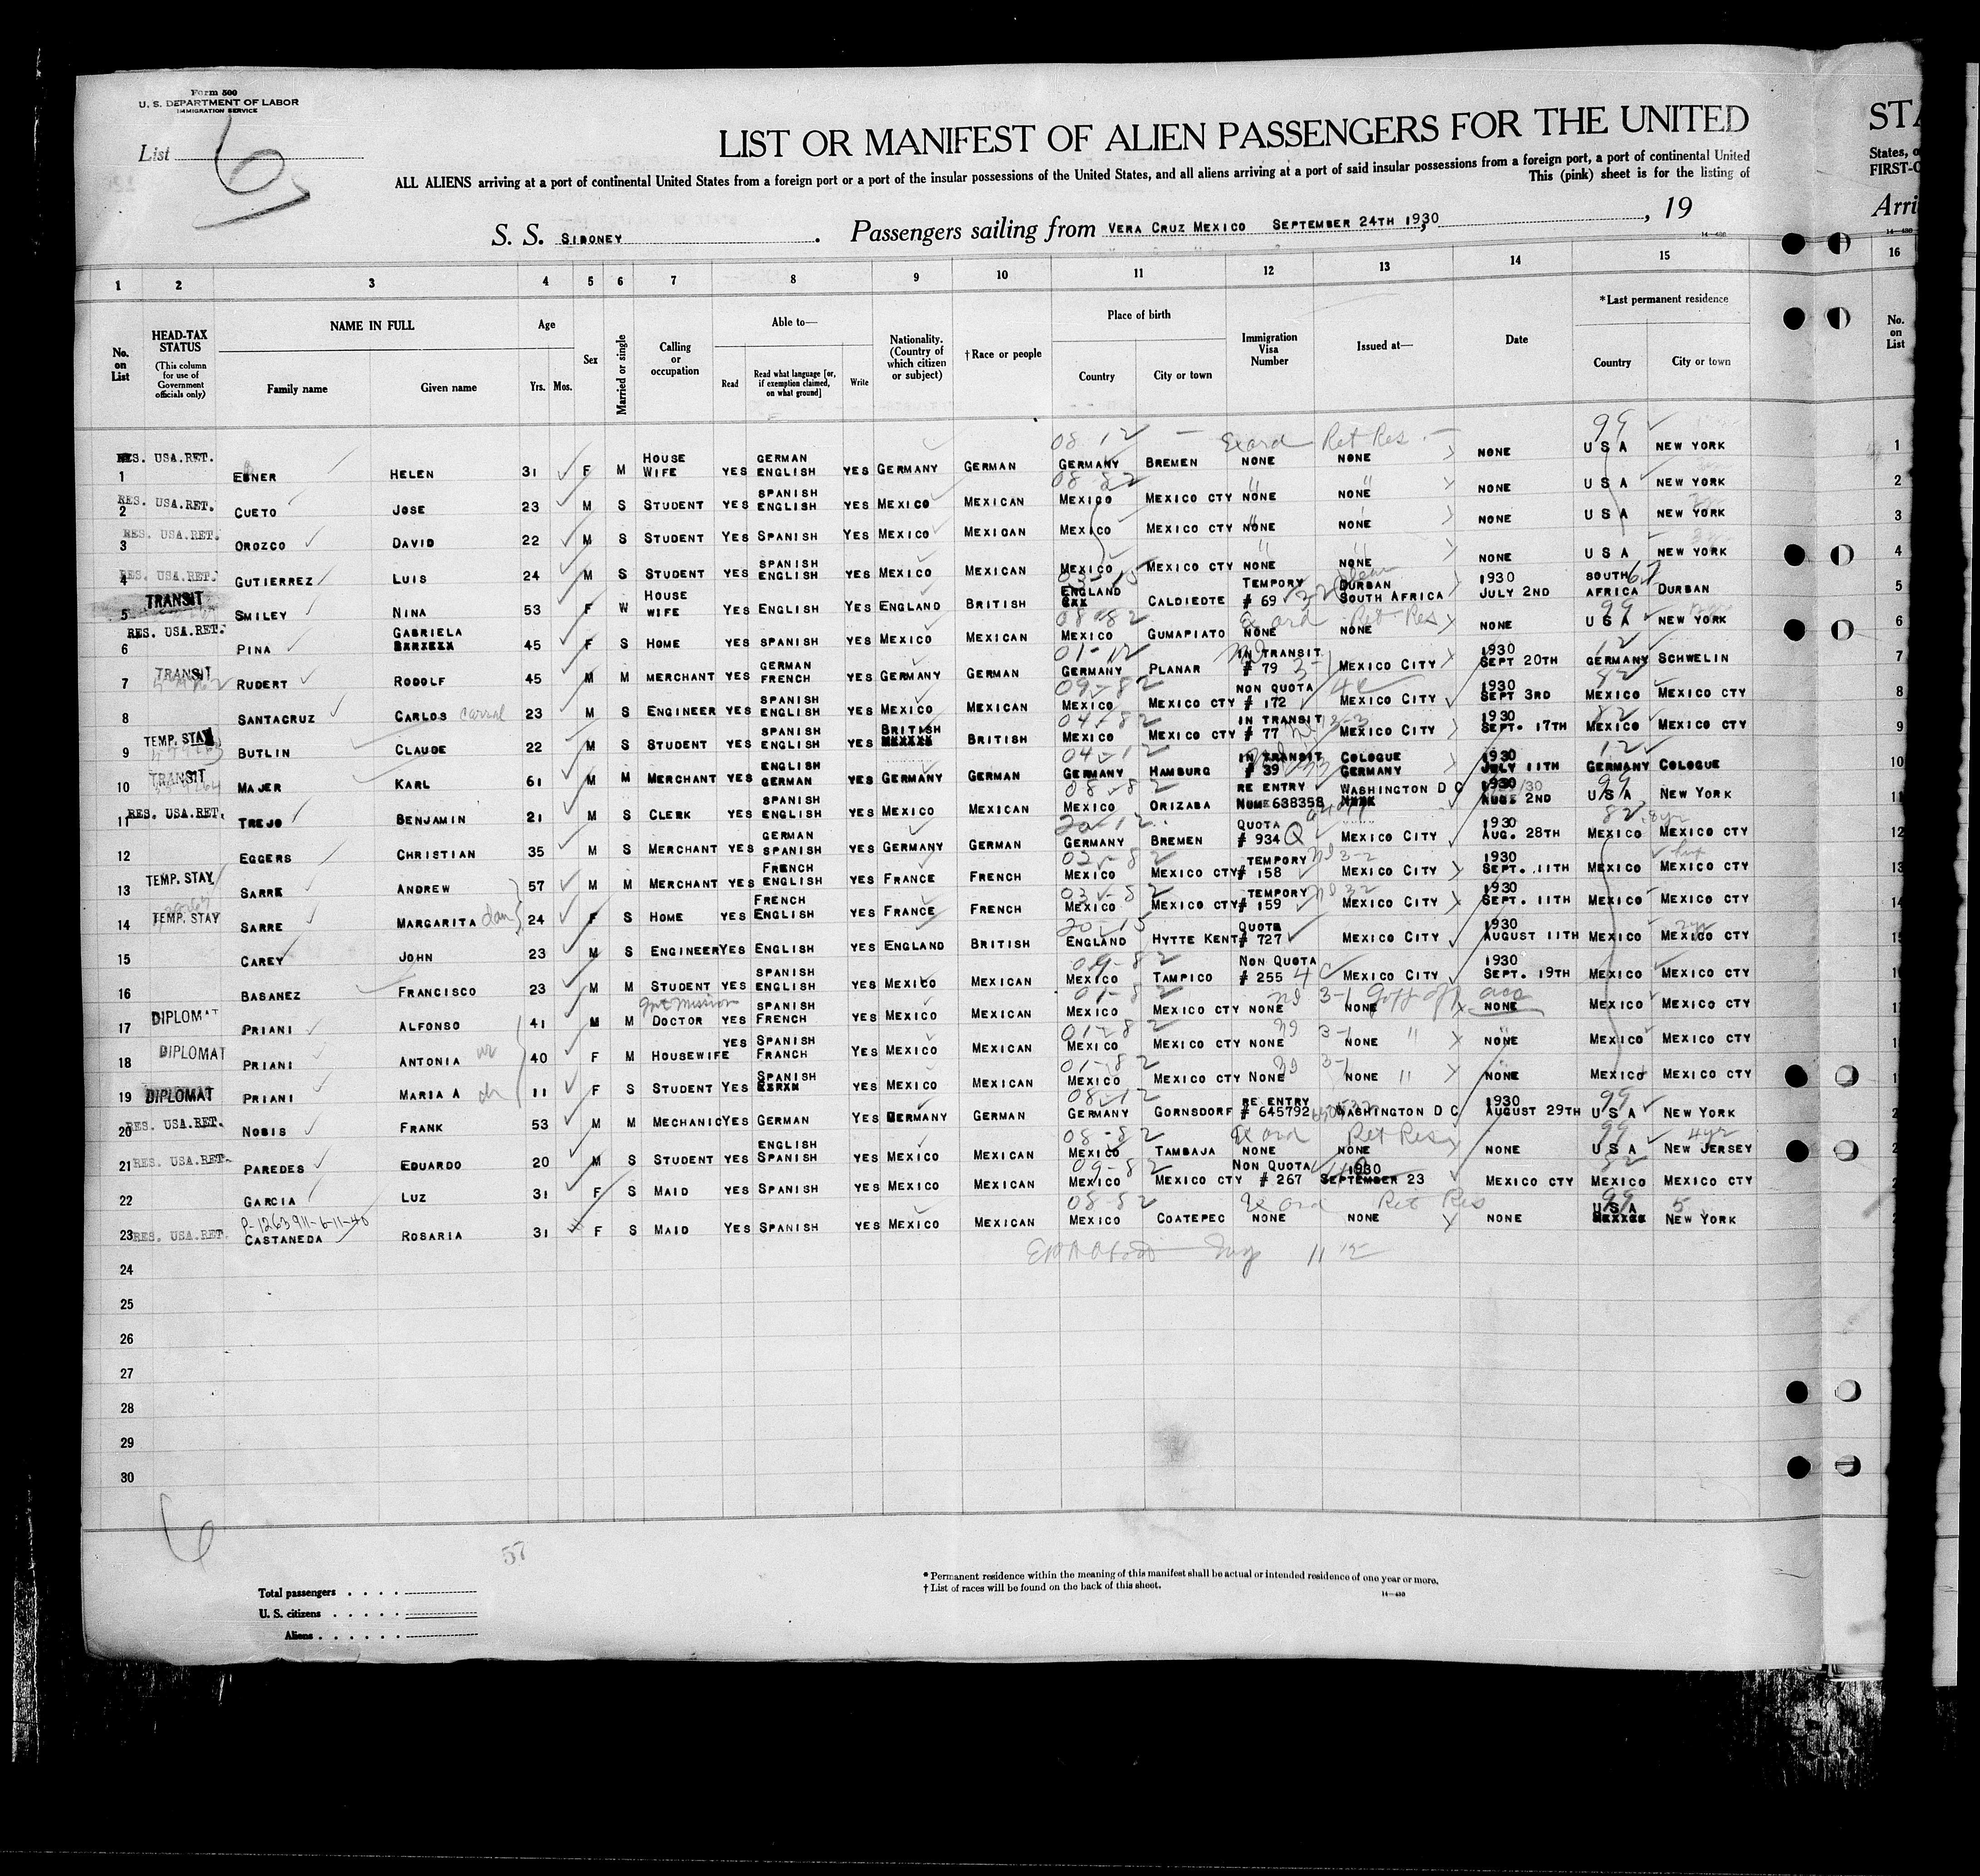 Form 500
U. S. DEPARTMENT OF LABOR
IMMIGRATION SERVICE
List 6
LIST OR MANIFEST OF ALIEN PASSENGERS FOR THE UNITED
STA
ALL ALIENS arriving at a port of continental United States from a foreign port or a port of the insular possessions of the United States, and all aliens arriving at a port of said insular possessions from a foreign port, a port of continental United
States, o
This (pink) sheet is for the listing of
FIRST-C
S. S. SIBONEY. Passengers sailing from VERA CRUZ MEXICO SEPTEMBER 24TH 1930, 19
Arri
1 2 3 4 5 6 7 8 9 10 11 12 13 14 15 16
No. on List
HEAD-TAX STATUS (This column for use of Government officials only)
NAME IN FULL Family name Given name
Age Yrs. Mos.
Sex
Married or single
Calling or occupation
Able to— Read Read what language [or, if exemption claimed, on what ground] Write
Nationality. (Country of which citizen or subject)
†Race or people
Place of birth Country City or town
Immigration Visa Number
Issued at—
Date
*Last permanent residence Country City or town
No. on List
1 RES. USA.RET. EBNER HELEN 31 F M HOUSE WIFE YES GERMAN ENGLISH YES GERMANY GERMAN GERMANY BREMEN NONE NONE NONE U S A NEW YORK 1
2 RES. USA.RET. CUETO JOSE 23 M S STUDENT YES SPANISH ENGLISH YES MEXICO MEXICAN MEXICO MEXICO CTY NONE NONE NONE U S A NEW YORK 2
3 RES. USA.RET. OROZCO DAVID 22 M S STUDENT YES SPANISH YES MEXICO MEXICAN MEXICO MEXICO CTY NONE NONE NONE U S A NEW YORK 3
4 RES. USA.RET. GUTIERREZ LUIS 24 M S STUDENT YES SPANISH ENGLISH YES MEXICO MEXICAN MEXICO MEXICO CTY NONE NONE NONE U S A NEW YORK 4
5 TRANSIT SMILEY NINA 53 F W HOUSE WIFE YES ENGLISH YES ENGLAND BRITISH ENGLAND CALDIEDTE TEMPORY # 69 DURBAN SOUTH AFRICA 1930 JULY 2ND SOUTH AFRICA DURBAN 5
6 RES. USA.RET. PINA GABRIELA 45 F S HOME YES SPANISH YES MEXICO MEXICAN MEXICO GUMAPIATO NONE NONE NONE U S A NEW YORK 6
7 TRANSIT RUDERT RODOLF 45 M M MERCHANT YES GERMAN FRENCH YES GERMANY GERMAN GERMANY PLANAR IN TRANSIT # 79 MEXICO CITY 1930 SEPT 20TH GERMANY SCHWELIN 7
8 SANTACRUZ CARLOS 23 M S ENGINEER YES SPANISH ENGLISH YES MEXICO MEXICAN MEXICO MEXICO CTY NON QUOTA # 172 MEXICO CITY 1930 SEPT 3RD MEXICO MEXICO CTY 8
9 TEMP. STAY BUTLIN CLAUDE 22 M S STUDENT YES SPANISH ENGLISH YES BRITISH BRITISH MEXICO MEXICO CTY IN TRANSIT # 77 MEXICO CITY 1930 SEPT. 17TH MEXICO MEXICO CTY 9
10 TRANSIT MAJER KARL 61 M M MERCHANT YES ENGLISH GERMAN YES GERMANY GERMAN GERMANY HAMBURG IN TRANSIT # 39 COLOGUE GERMANY 1930 JULY 11TH GERMANY COLOGUE 10
11 RES. USA.RET. TREJO BENJAMIN 21 M S CLERK YES SPANISH ENGLISH YES MEXICO MEXICAN MEXICO ORIZABA RE ENTRY NUM 638358 WASHINGTON D C 1930 AUG. 2ND U S A NEW YORK 11
12 EGGERS CHRISTIAN 35 M S MERCHANT YES GERMAN SPANISH YES GERMANY GERMAN GERMANY BREMEN QUOTA # 934 Q MEXICO CITY 1930 AUG. 28TH MEXICO MEXICO CTY 12
13 TEMP. STAY SARRE ANDREW 57 M M MERCHANT YES FRENCH ENGLISH YES FRANCE FRENCH MEXICO MEXICO CTY TEMPORY # 158 MEXICO CITY 1930 SEPT. 11TH MEXICO MEXICO CTY 13
14 TEMP. STAY SARRE MARGARITA dau 24 F S HOME YES FRENCH ENGLISH YES FRANCE FRENCH MEXICO MEXICO CTY TEMPORY # 159 MEXICO CITY 1930 SEPT. 11TH MEXICO MEXICO CTY 14
15 CAREY JOHN 23 M S ENGINEER YES ENGLISH YES ENGLAND BRITISH ENGLAND HYTTE KENT QUOTE # 727 MEXICO CITY 1930 AUGUST 11TH MEXICO MEXICO CTY 15
16 BASANEZ FRANCISCO 23 M M STUDENT YES SPANISH ENGLISH YES MEXICO MEXICAN MEXICO TAMPICO NON QUOTA # 255 4C MEXICO CITY 1930 SEPT. 19TH MEXICO MEXICO CTY
17 DIPLOMAT PRIANI ALFONSO 41 M M DOCTOR YES SPANISH FRENCH YES MEXICO MEXICAN MEXICO MEXICO CTY NONE NONE NONE MEXICO MEXICO CTY
18 DIPLOMAT PRIANI ANTONIA 40 F M HOUSEWIFE YES SPANISH FRANCH YES MEXICO MEXICAN MEXICO MEXICO CTY NONE NONE NONE MEXICO MEXICO CTY
19 DIPLOMAT PRIANI MARIA A 11 F S STUDENT YES SPANISH YES MEXICO MEXICAN MEXICO MEXICO CTY NONE NONE NONE MEXICO MEXICO CTY
20 RES. USA.RET. NOBIS FRANK 53 M M MECHANIC YES GERMAN YES GERMANY GERMAN GERMANY GORNSDORF RE ENTRY # 645792 WASHINGTON D C 1930 AUGUST 29TH U S A NEW YORK
21 RES. USA.RET. PAREDES EDUARDO 20 M S STUDENT YES ENGLISH SPANISH YES MEXICO MEXICAN MEXICO TAMBAJA NONE NONE NONE U S A NEW JERSEY
22 GARCIA LUZ 31 F S MAID YES SPANISH YES MEXICO MEXICAN MEXICO MEXICO CTY NON QUOTA # 267 1930 SEPTEMBER 23 MEXICO CTY MEXICO MEXICO CTY
P-1263911-6-11-40
23 RES. USA.RET. CASTANEDA ROSARIA 31 F S MAID YES SPANISH YES MEXICO MEXICAN MEXICO COATEPEC NONE NONE NONE U S A NEW YORK
24
25
26
27
28
29
30
6
57
Total passengers . . . .
U. S. citizens . . . . .
Aliens . . . . . .
*Permanent residence within the meaning of this manifest shall be actual or intended residence of one year or more.
†List of races will be found on the back of this sheet.
14—430